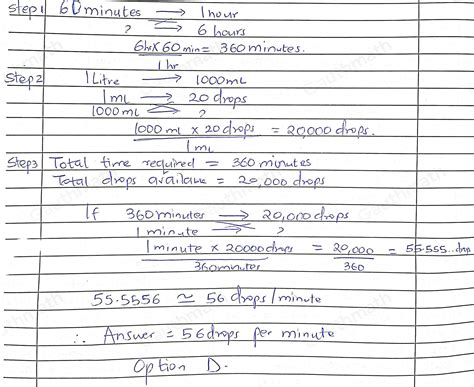 Step1 60minutes → 1hour
? → 6 hours
6hr X 60 min = 360 minutes.
1hr
Step2 1Litre → 1000mL
1mL → 20 drops
1000mL → ?
1000 mL x 20drops = 20,000 drops.
1mL
Step3 Total time required = 360 minutes
Total drops availane = 20,000 drops
If 360minutes → 20,000 drops
1 minute → ?
1minute x 20000drops = 20,000 = 55.555...drop
360minutes 360
55.5556 ≃ 56 drops/minute
∴ Answer = 56drops per minute
Option D.